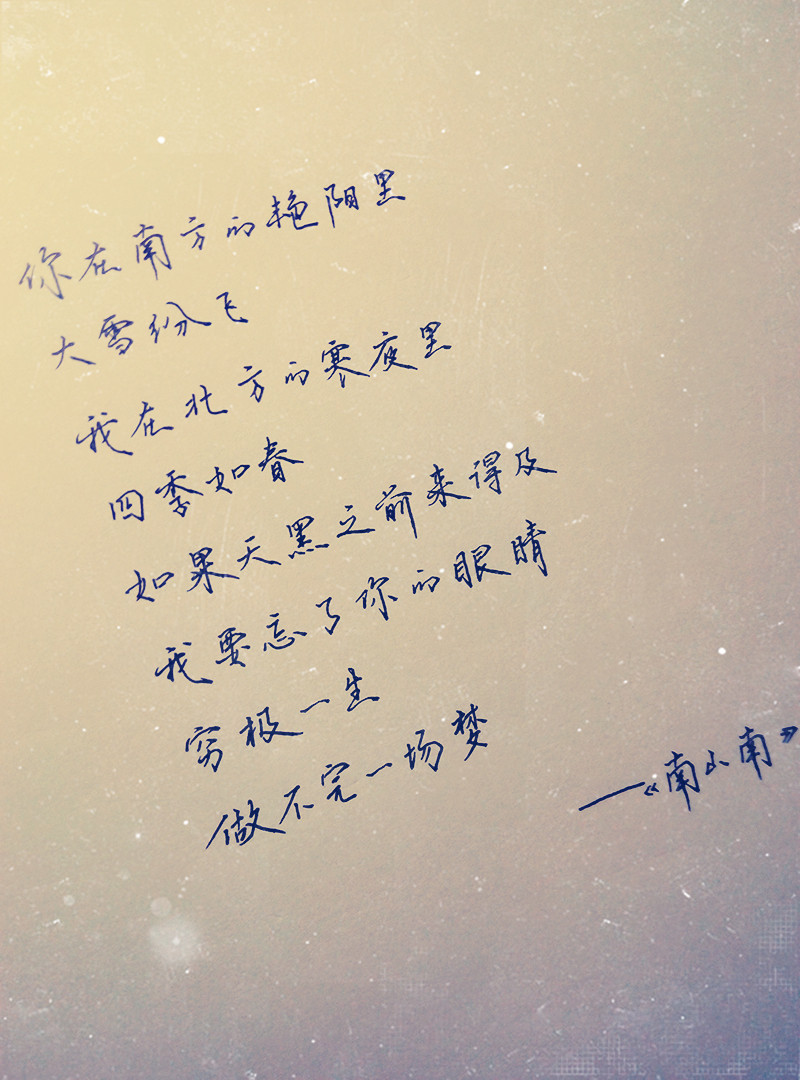 你在南方的艳阳里
大雪纷飞
我在北方的寒夜里
四季如春
如果天黑之前来得及
我要忘了你的眼睛
穷极一生
做不完一场梦
——《南山南》